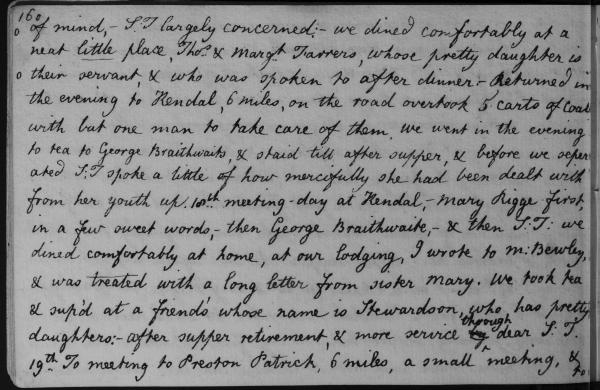 160
of mind,- S:T largely concerned:- we dined comfortably at a
neat little place, Thos. & Margt. Farrers, whose pretty daughter is
their servant, & who was spoken to after dinner:- Returned in
the evening to Kendal, 6 miles, on the road overtook 5 carts of Coal
with but one man to take care of them. we went in the evening
to tea to George Braithwaits, & staid till after supper, & before we seper
ated S:T spoke a little of how mercifully she had been dealt with
from her youth up. 18th meeting-day at Kendal,- Mary Rigge first,
in a few sweet words,- then George Braithwaite,- & then S:T: we
dined comfortably at home, at our lodging, I wrote to M: Bewley,
& was treated with a long letter from sister Mary. We took tea
& sup'd at a friend's whose name is Stewardson, who has pretty
daughters:- after supper retirement, & more service through dear S:T.
19th. To meeting to Preston Patrick, 6 miles, a small meeting, &
to